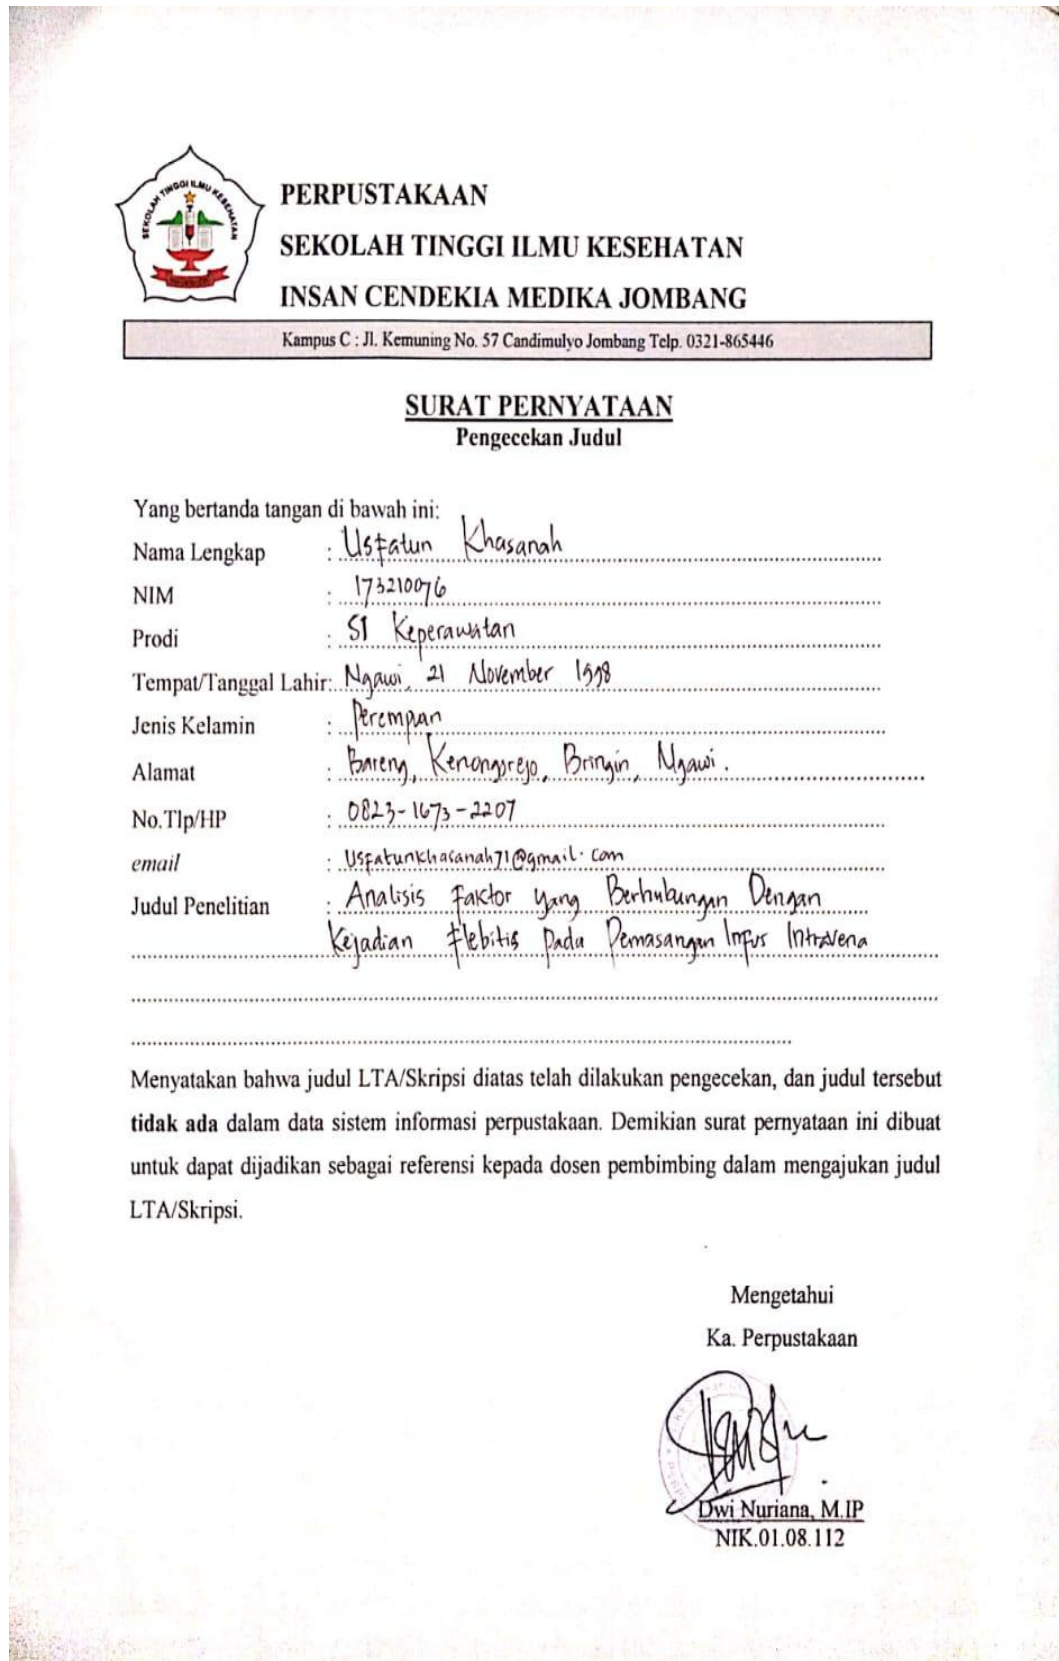 SEKOLAH TINGGI ILMU KESEHATAN
PERPUSTAKAAN
SEKOLAH TINGGI ILMU KESEHATAN
INSAN CENDEKIA MEDIKA JOMBANG
Kampus C : Jl. Kemuning No. 57 Candimulyo Jombang Telp. 0321-865446
SURAT PERNYATAAN
Pengecekan Judul
Yang bertanda tangan di bawah ini:
Nama Lengkap : Usfatun Khasanah
NIM : 173210076
Prodi : S1 Keperawatan
Tempat/Tanggal Lahir: Ngawi, 21 November 1998
Jenis Kelamin : Perempuan
Alamat : Bareng, Kenongorejo, Bringin, Ngawi.
No.Tlp/HP : 0823-1673-2207
email : Usfatunkhasanah71@gmail.com
Judul Penelitian : Analisis Faktor yang Berhubungan Dengan
Kejadian Flebitis pada Pemasangan Infus Intravena
Menyatakan bahwa judul LTA/Skripsi diatas telah dilakukan pengecekan, dan judul tersebut
tidak ada dalam data sistem informasi perpustakaan. Demikian surat pernyataan ini dibuat
untuk dapat dijadikan sebagai referensi kepada dosen pembimbing dalam mengajukan judul
LTA/Skripsi.
Mengetahui
Ka. Perpustakaan
Dwi Nuriana, M.IP
NIK.01.08.112